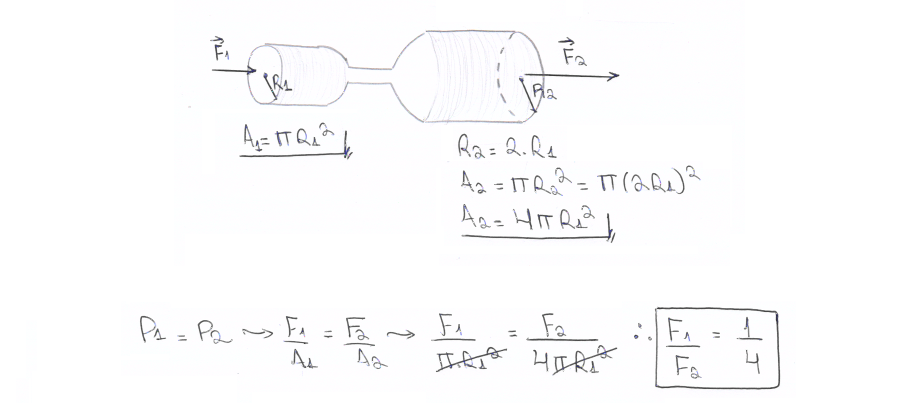 F⃗₁
F⃗₂
R₁
R₂
A₁ = π R₁²
R₂ = 2 . R₁
A₂ = π R₂² = π (2R₁)²
A₂ = 4 π R₁²
P₁ = P₂ ⤳ F₁/A₁ = F₂/A₂ ⤳ F₁/π.R₁² = F₂/4πR₁² ∴ F₁/F₂ = 1/4